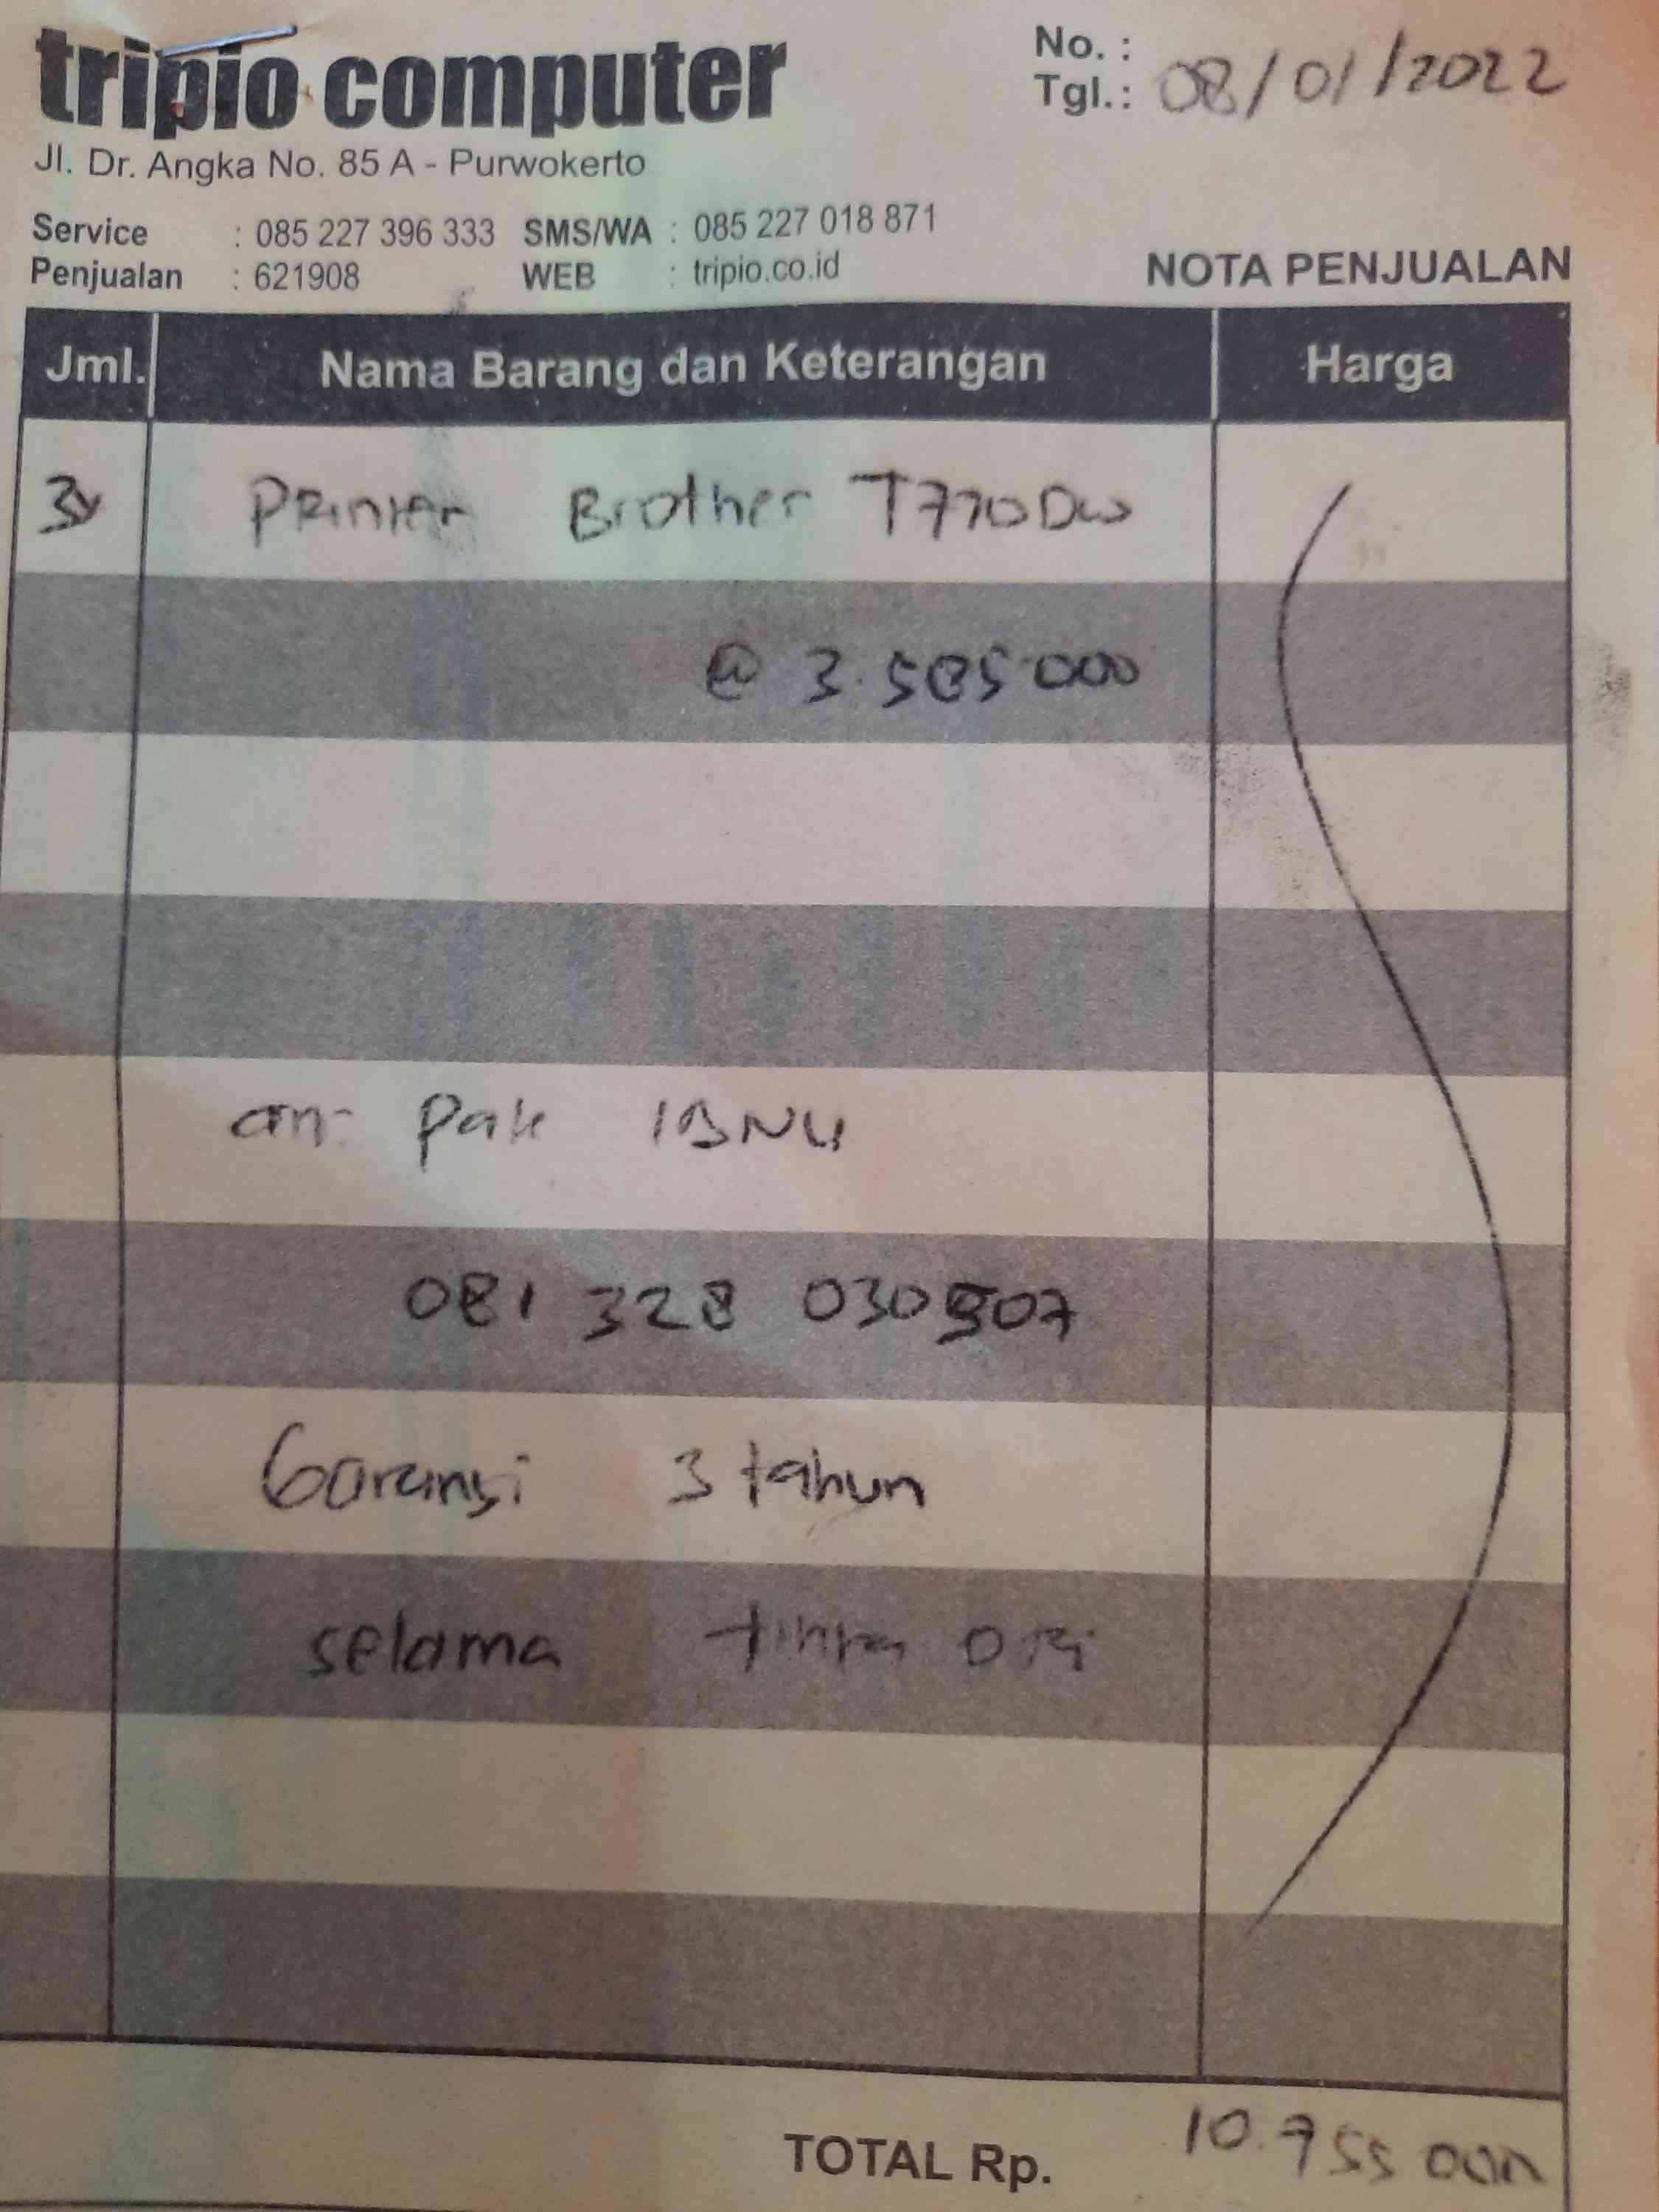 tripio computer
No. :
Tgl.: 08/01/2022
Jl. Dr. Angka No. 85 A - Purwokerto
Service : 085 227 396 333 SMS/WA : 085 227 018 871
Penjualan : 621908 WEB : tripio.co.id
NOTA PENJUALAN
Jml. Nama Barang dan Keterangan Harga
3x Printer Brother T770DW
@ 3.585000
an. Pak IBNU
081 328 030507
Garansi 3 tahun
selama tinta ori
TOTAL Rp. 10.755 000